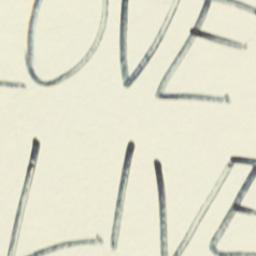 LOVE
LIVE